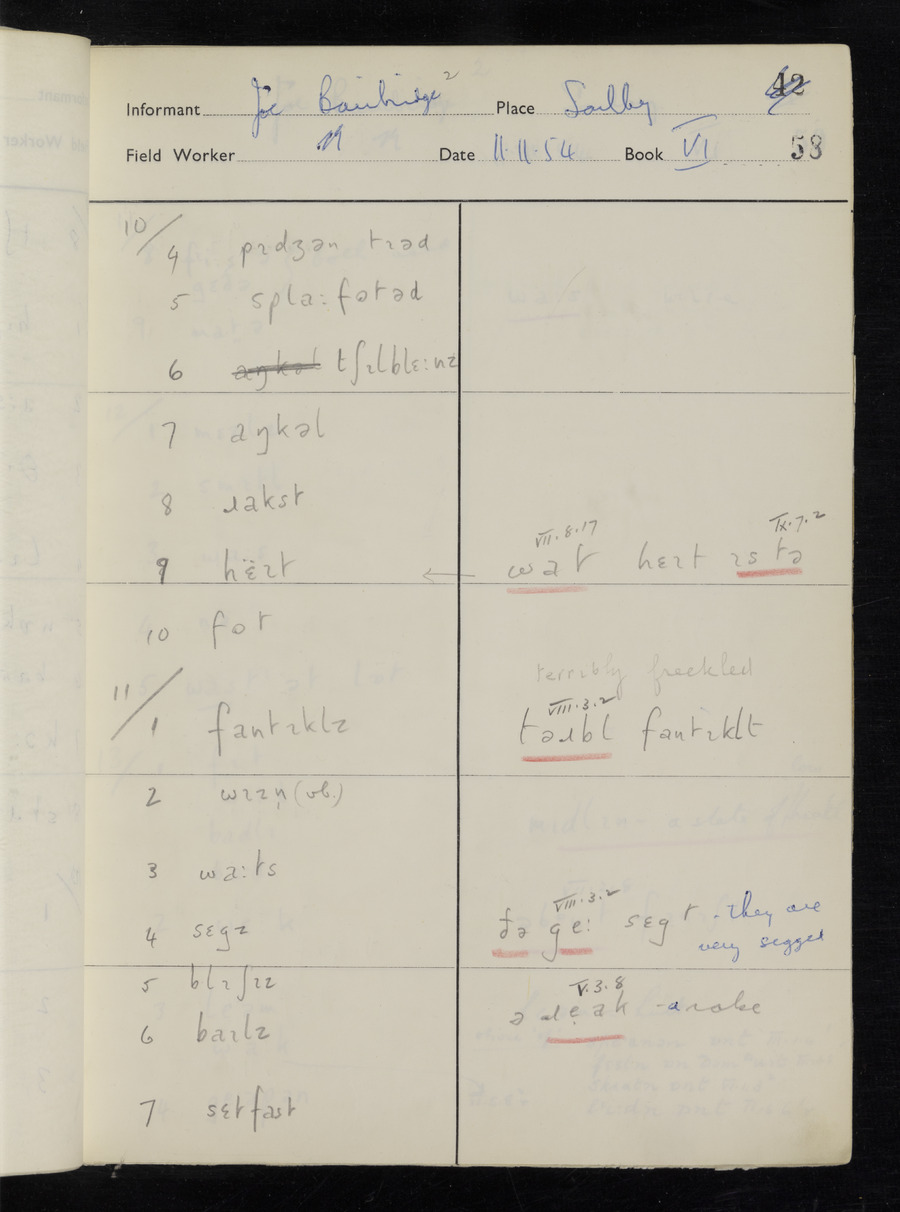 42
Informant Joe Bainbridge 2 Place Soulby
Field Worker Date 11·11·54 Book VI 53
10/
4 pɪdʒən tɪəd
5 spla:fətəd
6 aŋkəl tʃɪlblɛ:nz
7 aŋkəl
8 ɹakst
VII.8.17 IX.7.2
9 hɛ̈ɪt ← wat hɛɪt ɪs tə
10 fot
11/ terribly freckled
VIII.3.2
1 fantɪklz təɹbl fantɪklt
2 wɪzn̩ (vb.)
3 wa:ts
VIII.3.2
4 sɛgz ðə ge: sɛgt - they are
very segget
5 blɪʃɪz V.3.8
ə ɹẹak - a roke
6 baɪlz
7 sɛtfast